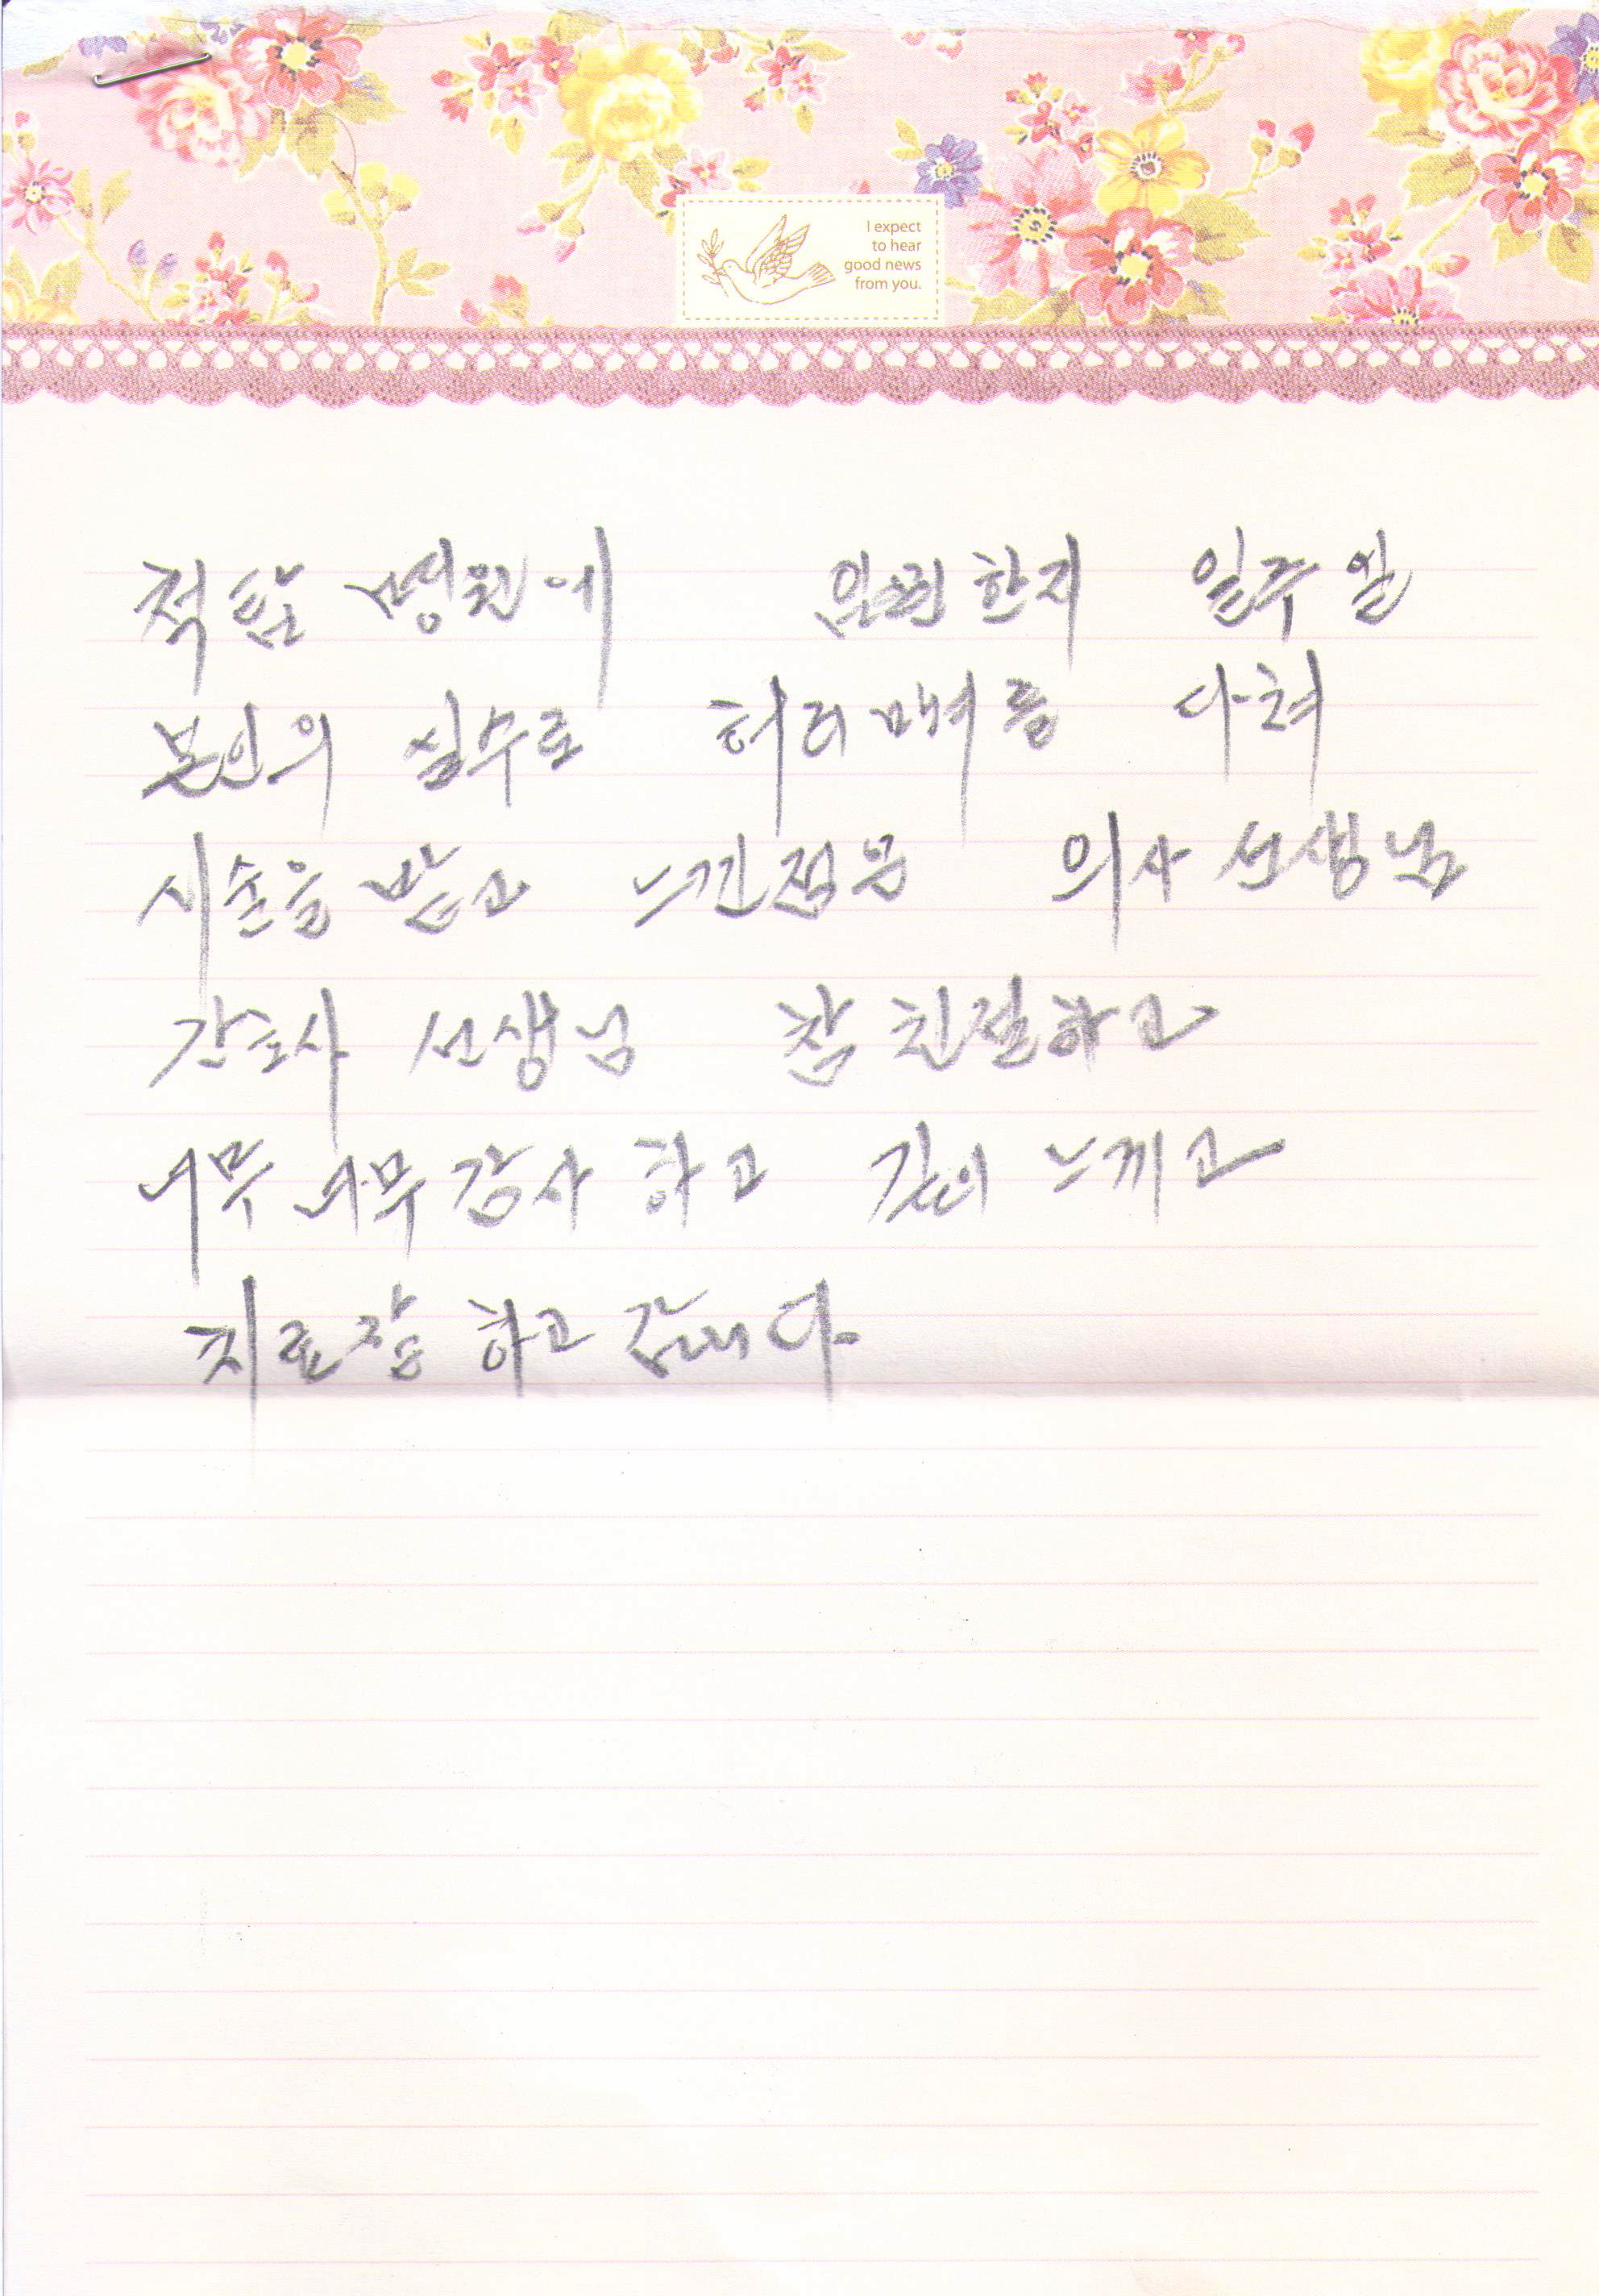 I expect
to hear
good news
from you.
척탑 병원에 입원한지 일주일
본인의 실수로 허리 뼈를 다쳐
시술을 받고 느낀점은 의사 선생님
간호사 선생님 참 친절하고
너무 너무 감사 하고 깊이 느끼고
치료잘 하고 갑니다.